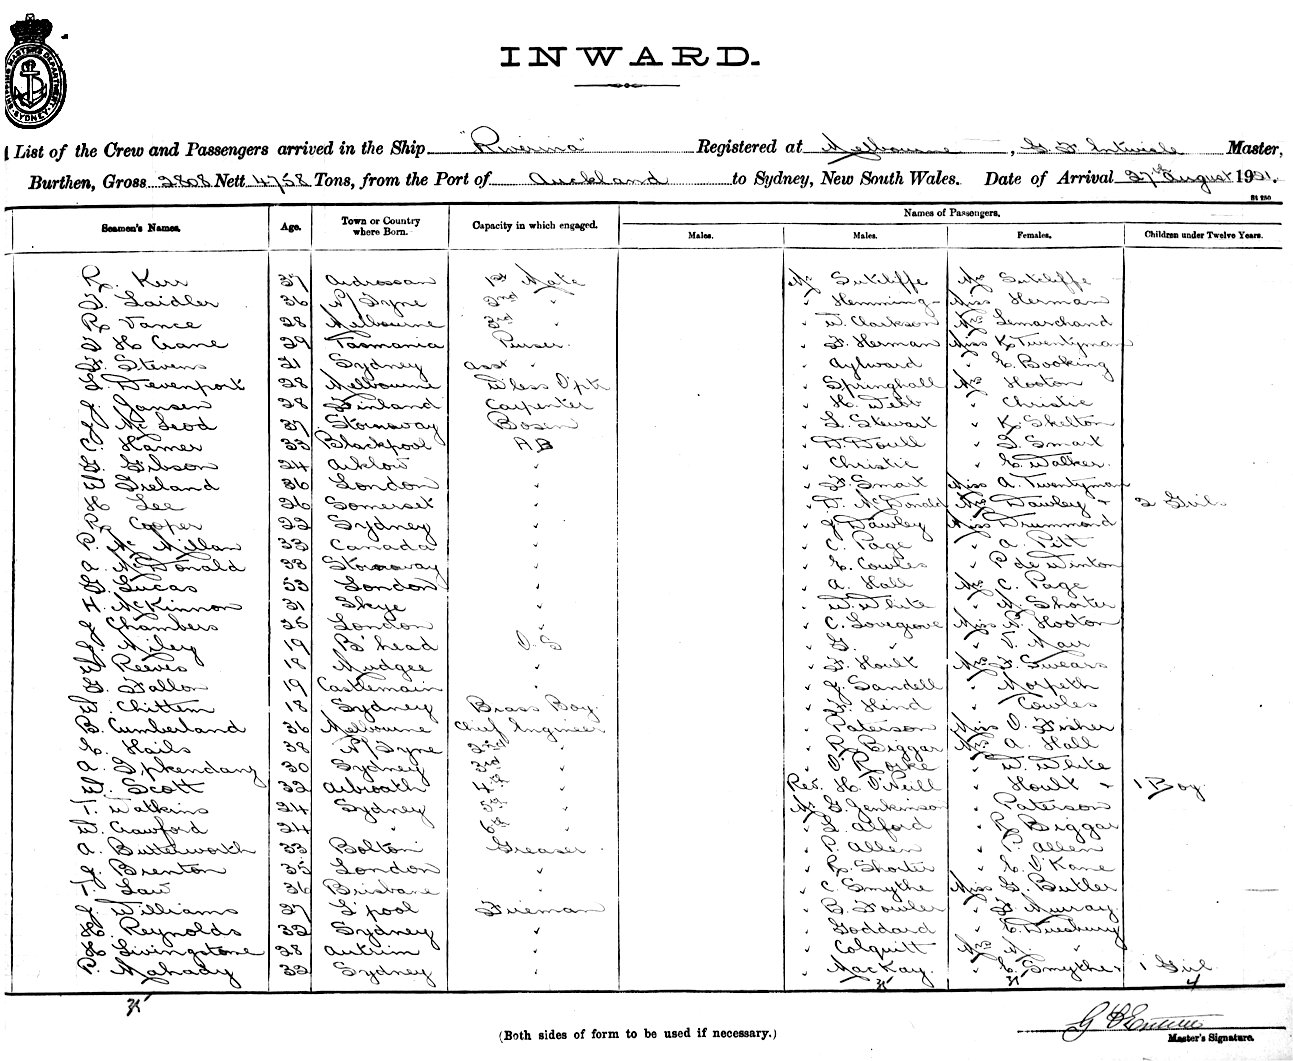 SHIPPING MASTERS DEPARTMENT SYDNEY
INWARD.
List of the Crew and Passengers arrived in the Ship "Riverina" Registered at Melbourne, G Entwisle Master,
Burthen, Gross 2808 Nett 4758 Tons, from the Port of Auckland to Sydney, New South Wales. Date of Arrival 27th August 1921.
Names of Passengers.
Seamen's Names. Age. Town or Country where Born. Capacity in which engaged. Males. Males. Females. Children under Twelve Years.
R. Kerr 37 Ardrossan 1st Mate Mr Sutcliffe Mrs Sutcliffe
Laidler 36 N/Tyne 2nd " " Hemming Miss Herman
R. Vance 28 Melbourne 3rd " " W. Clarkson Mrs Lemarchand
H Crane 29 Tasmania Purser " F. Herman Miss K Twentyman
Stevens 21 Sydney asst " " Aylward " E. Booking
Devenport 28 Melbourne W'less Optr " Springhall Mrs Hooton
J. Jansen 28 Finland Carpenter " H. Webb " Christie
J. McLeod 37 Stornaway Bosen " L. Stewart " K Skelton
C. Hamer 33 Blackpool AB " D. Doull " Smart
G. Gibson 24 Arklow " " Christie " E. Walker.
W. Ireland 36 London " " F. Smart Miss A. Twentyman
H Lee 26 Somerset " " D. McDonald Mrs Dawley + 2 Girls
R. Cooper 22 Sydney " " J Dawley Miss Drummond
P. McMillan 33 Canada " " C. Page " A. Pitt
A. McDonald 33 Stornaway " " E. Cowles " P de Winton
G. Lucas 53 London " " A. Hall Mrs C. Page
McKinnon 31 Skye " " W. White " Shorter
J Chambers 25 London " " C. Lovegrove Miss N. Hooton
J Miley 19 B'head O.S " G. " " V. May
W Reeves 18 Mudgee " " F. Hoult Mrs F. Swears
Fallon 19 Castlemain " " J. Sandell " Morpeth
W. Chittem 18 Sydney Brass Boy " F. Hind " Cowles
B. Cumberland 36 Melbourne Chief Engineer " Paterson Miss O. Fisher
E. Hails 38 N/Tyne 2nd " " R. Biggar Mrs A. Hall
A. 30 Sydney 3rd " " Yorke " W. White
W. Scott 32 Arbroath 4th " Rev. H. O'Neill " Hoult + 1 Boy
T. Watkins 24 Sydney 5th " Mr G. Jenkinson " Paterson
W. Crawford 24 " 6th " " L. Alford " R. Biggar
A. Butterworth 33 Bolton Greaser " P. Allen " P. Allen
J. Brenton 35 London " " R. Shorter " E. O'Kane
T. Law 36 Brisbane " " C Smythe Miss G. Butler
J. Williams 27 L'pool Fireman " B. Fowler " F Murray
H. Reynolds 32 Sydney " " Goddard " E Duesbury
H Livingstone 28 Antrim " " Colquitt Mrs N. "
P. Mahady 32 Sydney " " Mackay. " E. Smythe. 1 Girl
35 35 35 4
(Both sides of form to be used if necessary.)
Master's Signature.